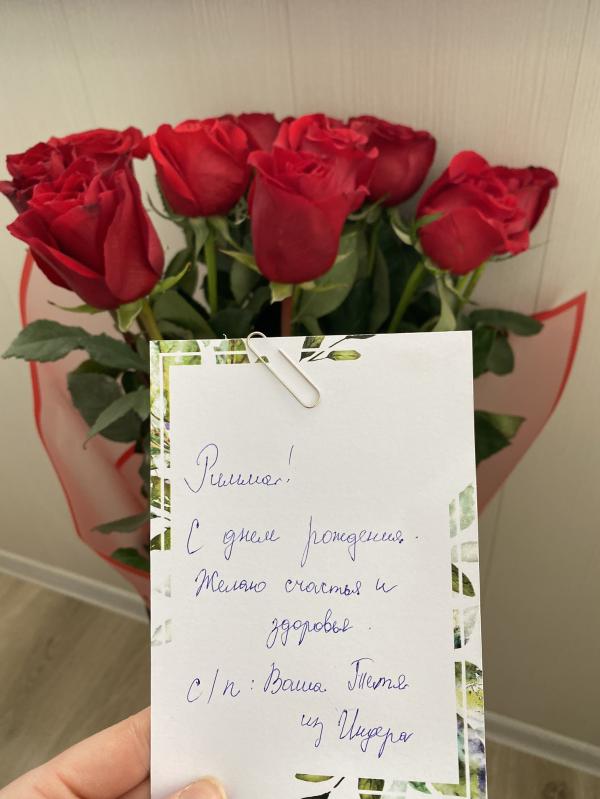 Римма!
С днем рождения.
Желаю счастья и
здоровья.
с/п: Ваша Тетя
из Индера